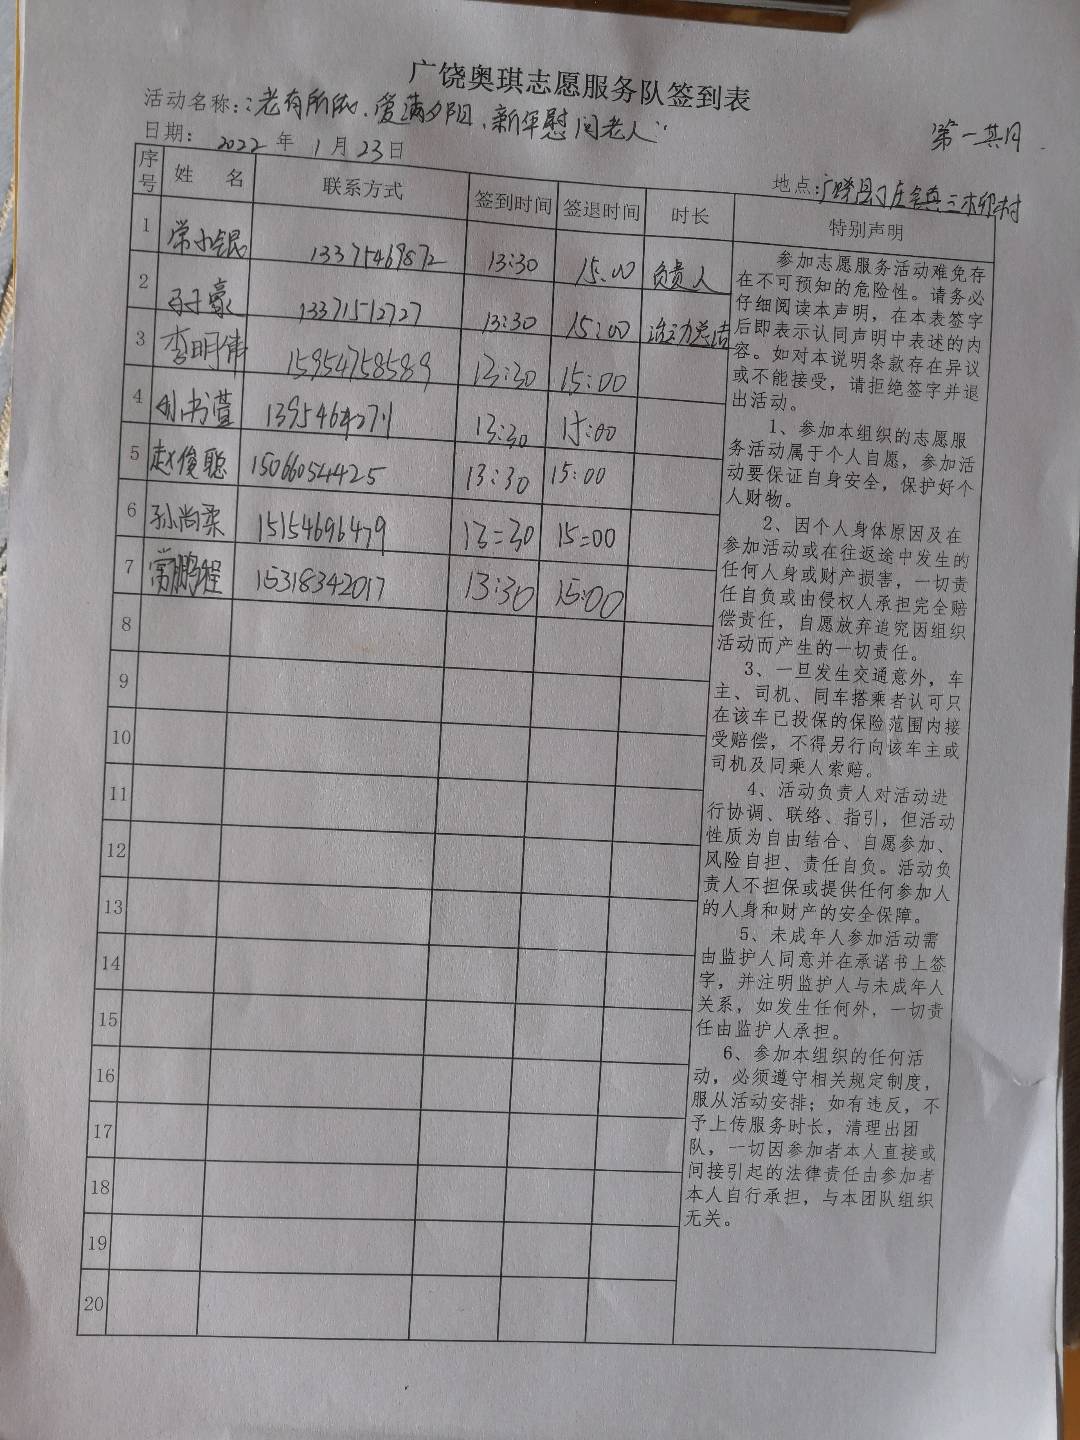 广饶奥琪志愿服务队签到表
活动名称：：老有所依、爱满夕阳、新年慰问老人”
第一其月
日期：2022年1月23日
地点：广饶县丁庄镇三村
序号 姓名 联系方式 签到时间 签退时间 时长 特别声明
1 常小银 13375469872 13:30 15:00 负责人
2 孙子豪 13371512727 13:30 15:00 活动总结
3 李明伟 15954758589 13:30 15:00
4 书萱 13:30 15:00
5 赵俊聪 15066054425 13:30 15:00
6 孙尚柔 15154696479 13=30 15=00
7 常鹏程 15318342017 13:30 15:00
8
9
10
11
12
13
14
15
16
17
18
19
20
参加志愿服务活动难免存
在不可预知的危险性。请务必
仔细阅读本声明，在本表签字
后即表示认同声明中表述的内
容。如对本说明条款存在异议
或不能接受，请拒绝签字并退
出活动。
1、参加本组织的志愿服
务活动属于个人自愿，参加活
动要保证自身安全，保护好个
人财物。
2、因个人身体原因及在
参加活动或在往返途中发生的
任何人身或财产损害，一切责
任自负或由侵权人承担完全赔
偿责任，自愿放弃追究因组织
活动而产生的一切责任。
3、一旦发生交通意外，车
主、司机、同车搭乘者认可只
在该车已投保的保险范围内接
受赔偿，不得另行向该车主或
司机及同乘人索赔。
4、活动负责人对活动进
行协调、联络、指引，但活动
性质为自由结合、自愿参加、
风险自担、责任自负。活动负
责人不担保或提供任何参加人
的人身和财产的安全保障。
5、未成年人参加活动需
由监护人同意并在承诺书上签
字，并注明监护人与未成年人
关系，如发生任何外，一切责
任由监护人承担。
6、参加本组织的任何活
动，必须遵守相关规定制度，
服从活动安排；如有违反，不
予上传服务时长，清理出团
队，一切因参加者本人直接或
间接引起的法律责任由参加者
本人自行承担，与本团队组织
无关。